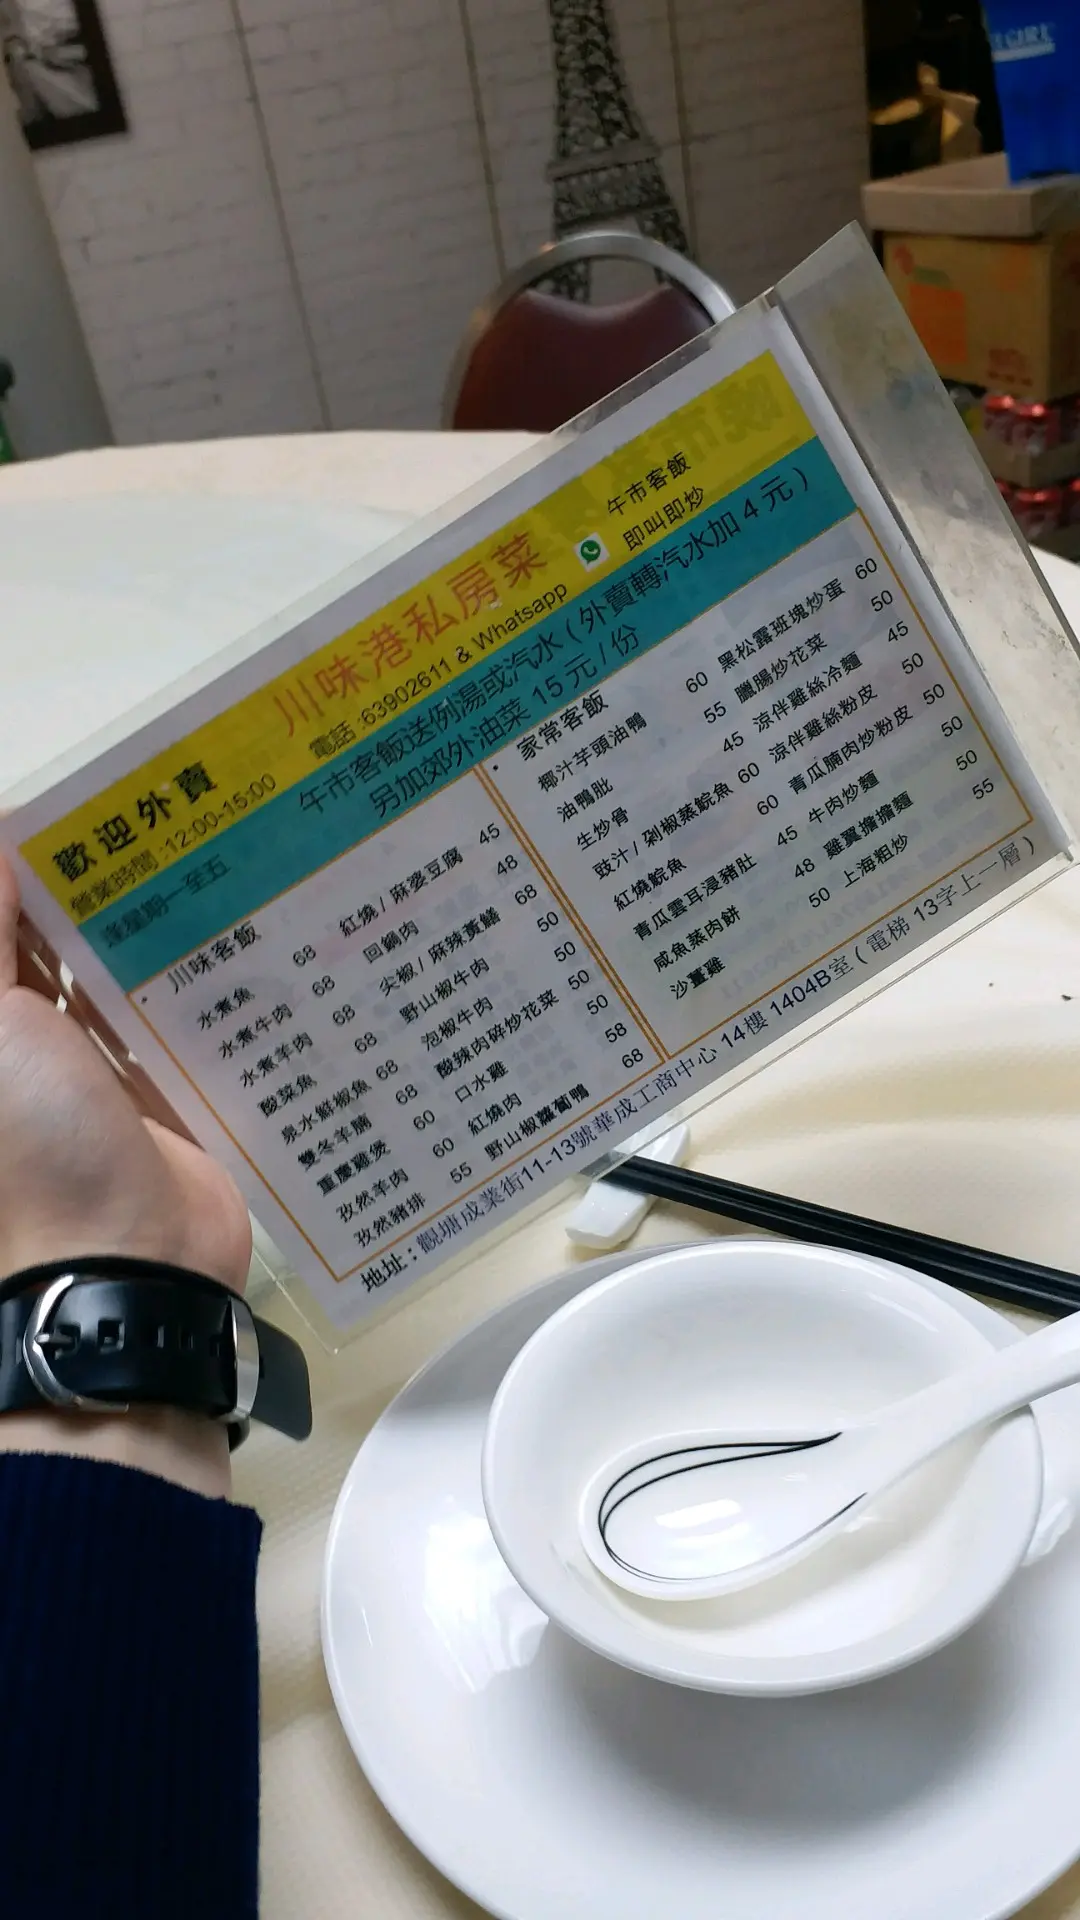 歡迎外賣
營業時間:12:00-15:00
川味港私房菜
電話:63902611 & Whatsapp
午市客飯
即叫即炒
逢星期一至五
午市客飯送例湯或汽水(外賣轉汽水加 4 元)
另加郊外油菜 15 元/份
· 川味客飯
水煮魚 68 紅燒/麻婆豆腐 45
水煮牛肉 68 回鍋肉 48
水煮羊肉 68 尖椒/麻辣黃鱔 68
酸菜魚 68 野山椒牛肉 50
泉水鮮椒魚 68 泡椒牛肉 50
雙冬羊腩 68 酸辣肉碎炒花菜 50
重慶雞煲 60 口水雞 50
孜然羊肉 60 紅燒肉 58
孜然豬排 55 野山椒蘿蔔鴨 68
· 家常客飯
椰汁芋頭油鴨 60 黑松露班塊炒蛋 60
油鴨肶 55 臘腸炒花菜 50
生炒骨 45 涼伴雞絲冷麵 45
豉汁/剁椒蒸鯇魚 60 涼伴雞絲粉皮 50
紅燒鯇魚 60 青瓜腩肉炒粉皮 50
青瓜雲耳浸豬肚 45 牛肉炒麵 50
咸魚蒸肉餅 48 雞翼擔擔麵 50
沙薑雞 50 上海粗炒 55
地址:觀塘成業街11-13號華成工商中心 14樓 1404B室(電梯 13字上一層)